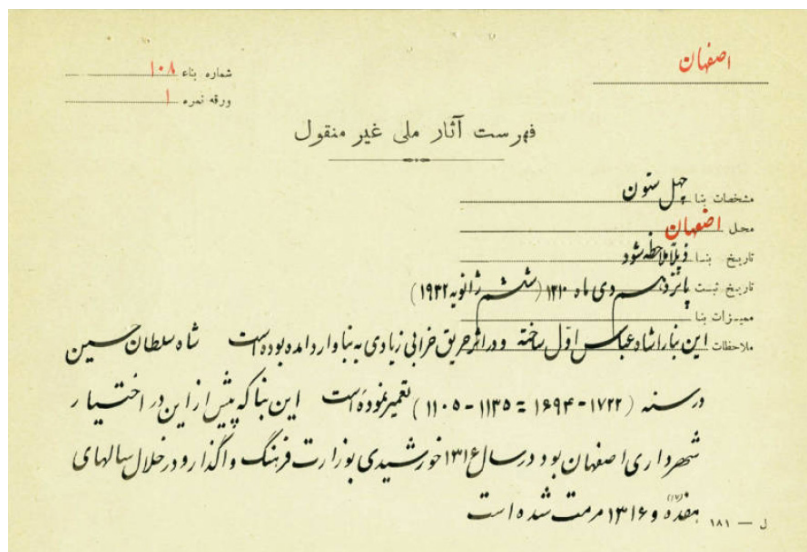 اصفهان
شماره بناء ۱۰۸
ورقه نمره ۱
فهرست آثار ملی غیر منقول
مشخصات بنا چهل ستون
محل اصفهان
تاریخ بنا ذیلاً ملاحظه شود
تاریخ ثبت پانزدهم دی ماه ۱۳۱۰ (ششم ژانویه ۱۹۳۲)
ممیزات بنا
ملاحظات این بنا را شاه عباس اوّل ساخته و در اثر حریق خرابی زیادی به بنا وارد آمده بوده است شاه سلطان حسین
در سنه (۱۷۲۲ - ۱۶۹۴ = ۱۱۳۵ - ۱۱۰۵) تعمیر نموده است این بنا که پیش از این در اختیار
شهرداری اصفهان بود در سال ۱۳۱۶ خورشیدی بوزارت فرهنگ واگذار و در خلال سالهای
هفده (۱۷) و ۱۳۱۶ مرمت شده است
ل — ۱۸۱